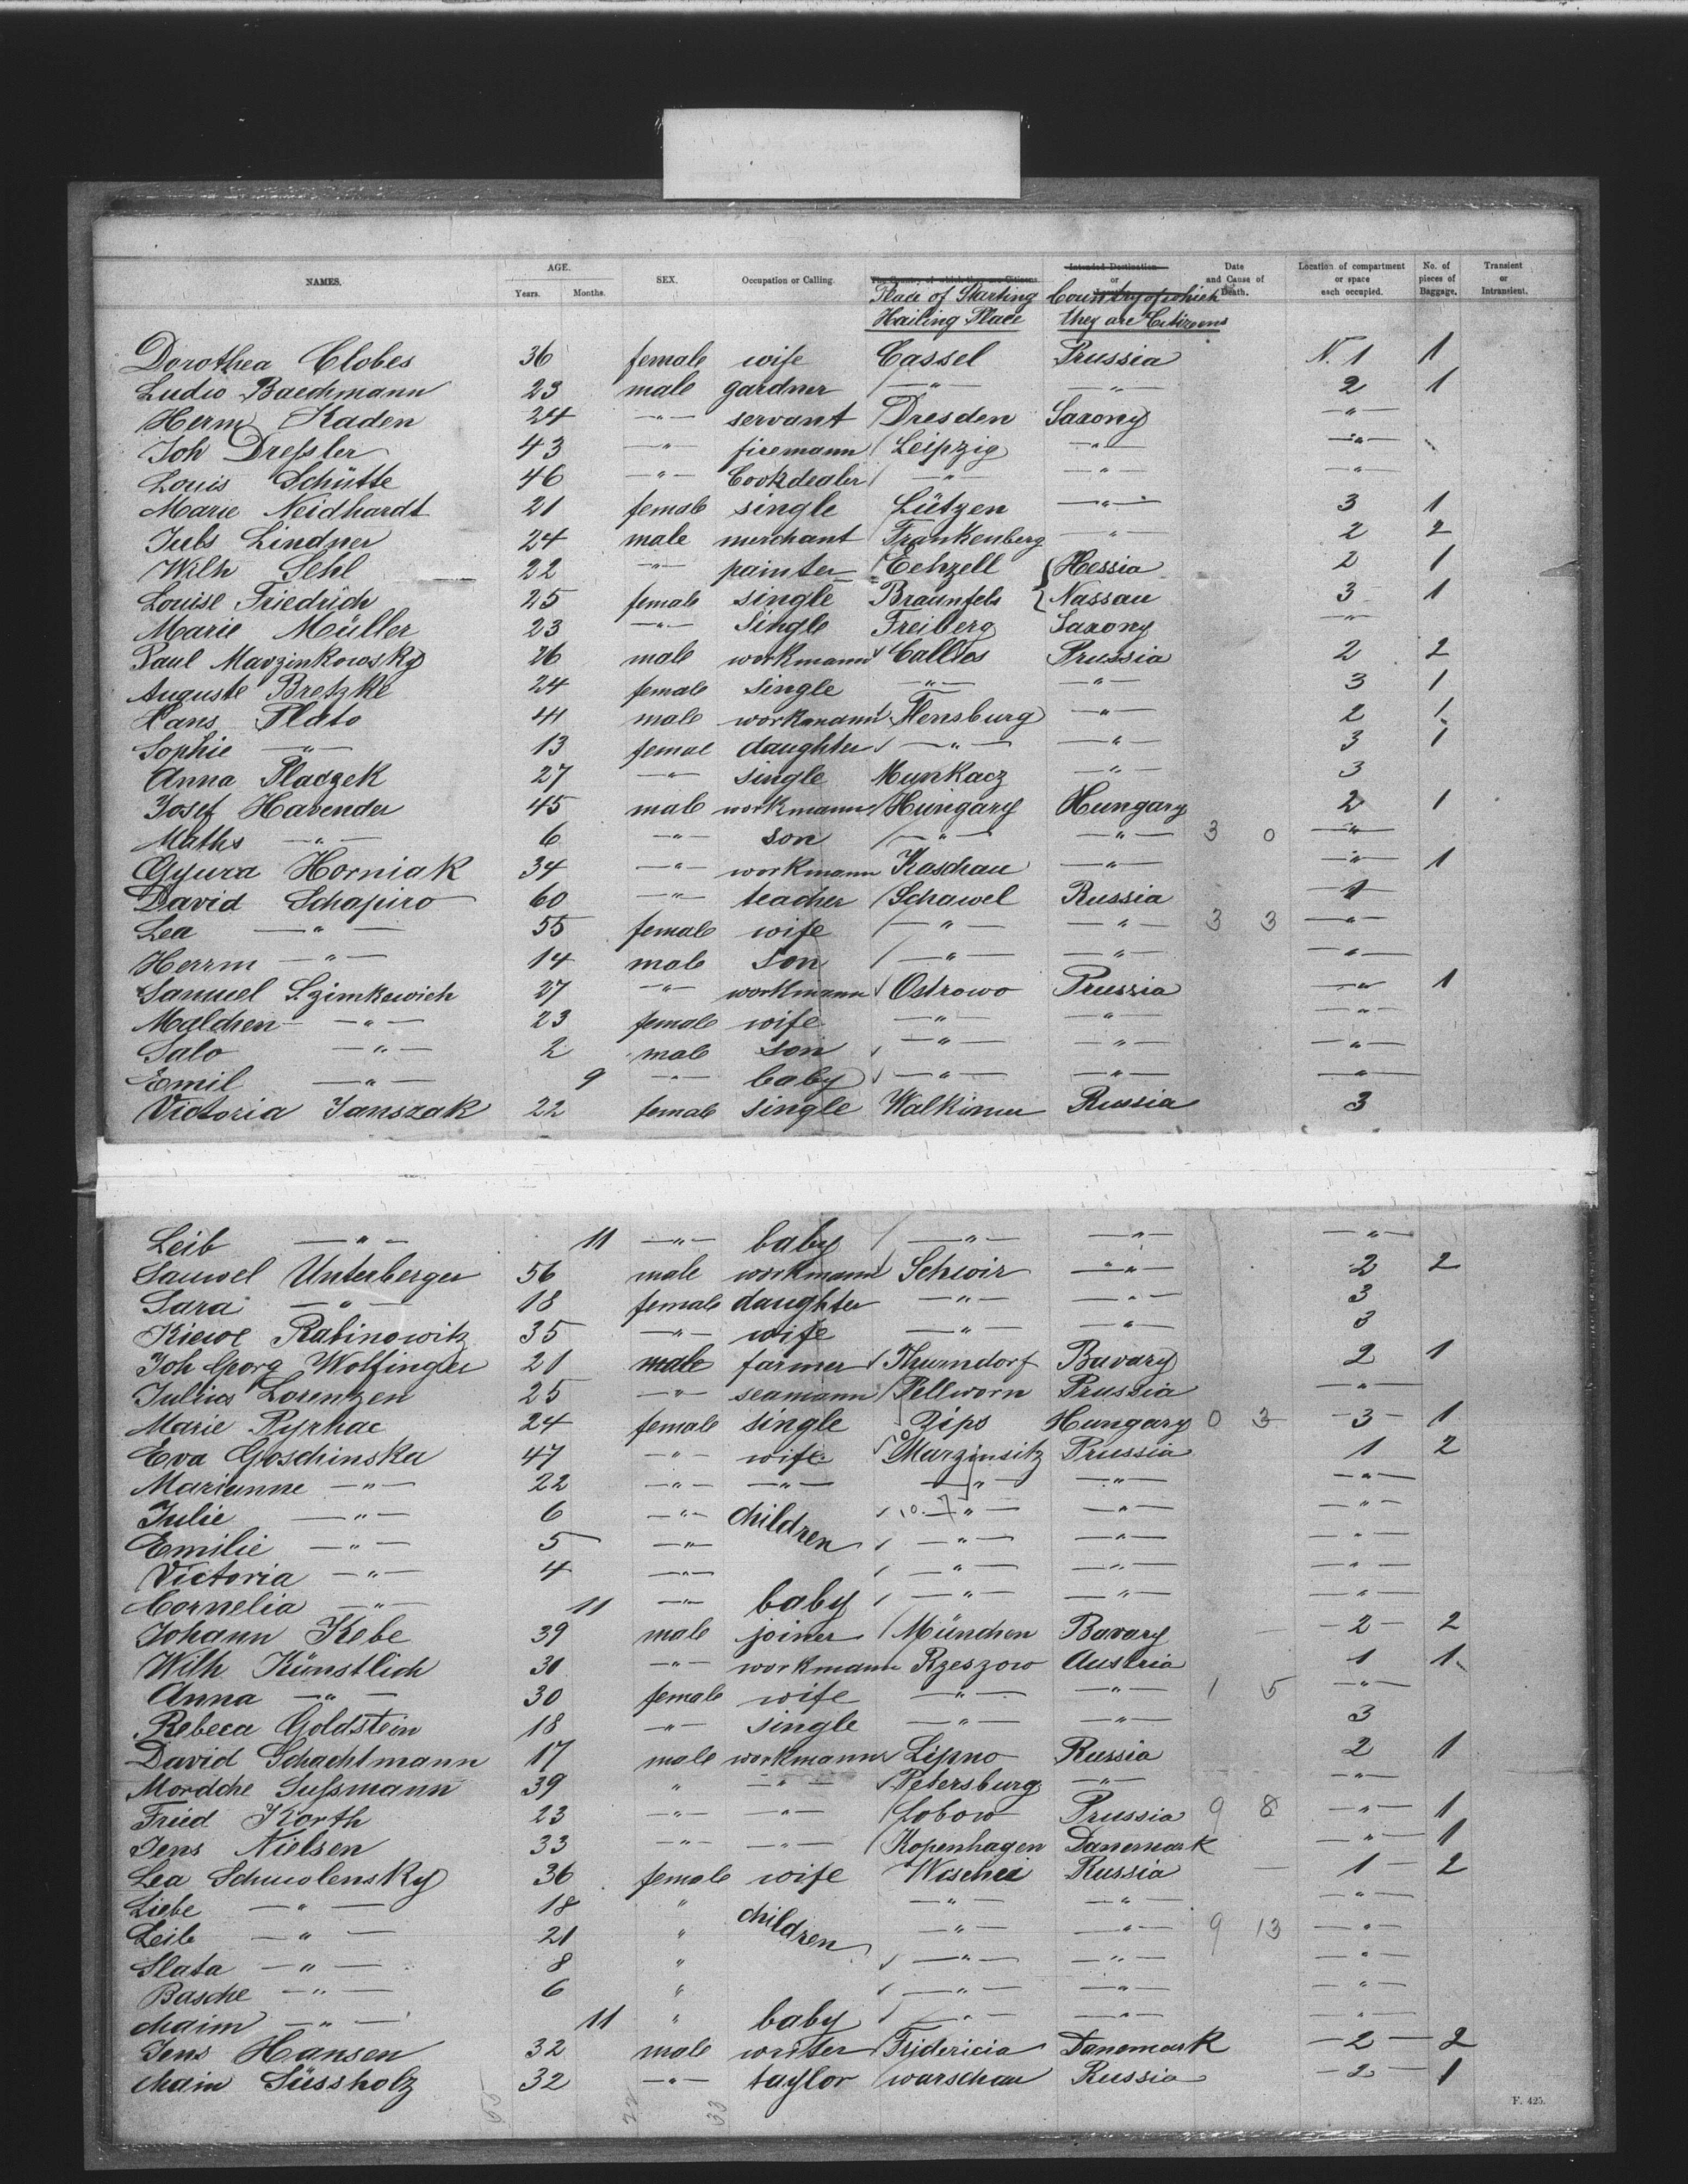 NAMES. AGE. SEX. Occupation or Calling. The Country of which they are Citizens. Intended Destination or Date and Cause of Death. Location of compartment or space each occupied. No. of pieces of Baggage. Transient or Intransient.
Years. Months. Place of Starting Country of which
Hailing Place they are Citizens
Dorothea Clobes 36 female wife Cassel Prussia N. 1 1
Ludw Baechmann 23 male gardner —"— —"— 2 1
Herm Kaden 24 —"— servant Dresden Saxony —"—
Joh Dressler 43 —"— firemann Leipzig —"— —"—
Louis Schütte 46 —"— —"— —"— —"—
Marie Neidhardt 21 female single Lützen —"— 3 1
Juls Lindner 24 male merchant Frankenberg —"— 2 2
Wilh Sehl 22 —"— painter Echzell Hessia 2 1
Louise Friedrich 25 female single Braunfels Nassau 3 1
Marie Müller 23 —"— Single Freiberg Saxony —"—
Paul Marzinkowsky 26 male workmann Prussia 2 2
Auguste Bretzke 24 female single —"— —"— 3 1
Hans Plato 41 male workmann Flensburg —"— 2 1
Sophie —"— 13 femal daughter —"— —"— 3 1
Anna Pladzek 27 —"— single Munkacz —"— 3
Josef Havender 45 male workmann Hungary Hungary 2 1
Maths —"— 6 —"— son —"— —"— 3 0 —"—
Gyura Horniak 34 —"— workmann Kaschau —"— —"— 1
David Schapiro 60 —"— teacher Schawel Russia 1
Lea —"— 55 female wife —"— —"— 3 3 —"—
Herrm —"— 14 male son —"— —"— —"—
Samuel Szimkewich 27 —"— workmann Ostrowo Prussia —"— 1
Malchen —"— 23 female wife —"— —"— —"—
Salo —"— 2 male son —"— —"— —"—
Emil —"— 9 —"— baby —"— —"— —"—
Victoria Janszak 22 female single Russia 3
Leib —"— 11 —"— baby —"— —"— —"—
Sauwel Unterberger 56 male workmann Schwir —"— 2 2
Sara —"— 18 female daughter —"— —"— 3
Kiewe Rabinowitz 35 —"— wife —"— —"— 3
Joh Georg Wolfinger 21 male farmer Thurndorf Bavary 2 1
Julius Lorentzen 25 —"— seamann Pellworn Prussia —"—
Marie Pyrhac 24 female single Zips Hungary 0 3 3 1
Eva Goschinska 47 —"— wife Marzinsitz Prussia 1 2
Marianne —"— 22 —"— —"— —"— —"— —"—
Julie —"— 6 —"— children —"— —"— —"—
Emilie —"— 5 —"— —"— —"— —"—
Victoria —"— 4 —"— —"— —"— —"—
Cornelia —"— 11 —"— baby —"— —"— —"—
Johann Kebe 39 male joiner München Bavary 2 2
Wilh Künstlich 31 —"— workmann Rzeszow Austria 1 1
Anna —"— 30 female wife —"— —"— 1 5 —"—
Rebeca Goldstein 18 —"— single —"— —"— 3
David Schachtmann 17 male workmann Lipno Russia 2 1
Mordche Sussmann 39 " —"— Petersburg —"— —"—
Fried Korth 23 —"— —"— Lobow Prussia 9 8 —"— 1
Jens Nielsen 33 —"— —"— Kopenhagen Danemark —"— 1
Lea Schmolensky 36 female wife Russia 1 2
Liebe —"— 18 " children —"— —"— —"—
Leib —"— 21 " —"— —"— 9 13 —"—
Slata —"— 8 " —"— —"— —"—
Basche —"— 6 " —"— —"— —"—
chaim —"— 11 " baby —"— —"— —"—
Jens Hansen 32 male writer Fridericia Danemark 2 2
chaim Süssholz 32 —"— taylor warschau Russia 2 1
33
F. 425.